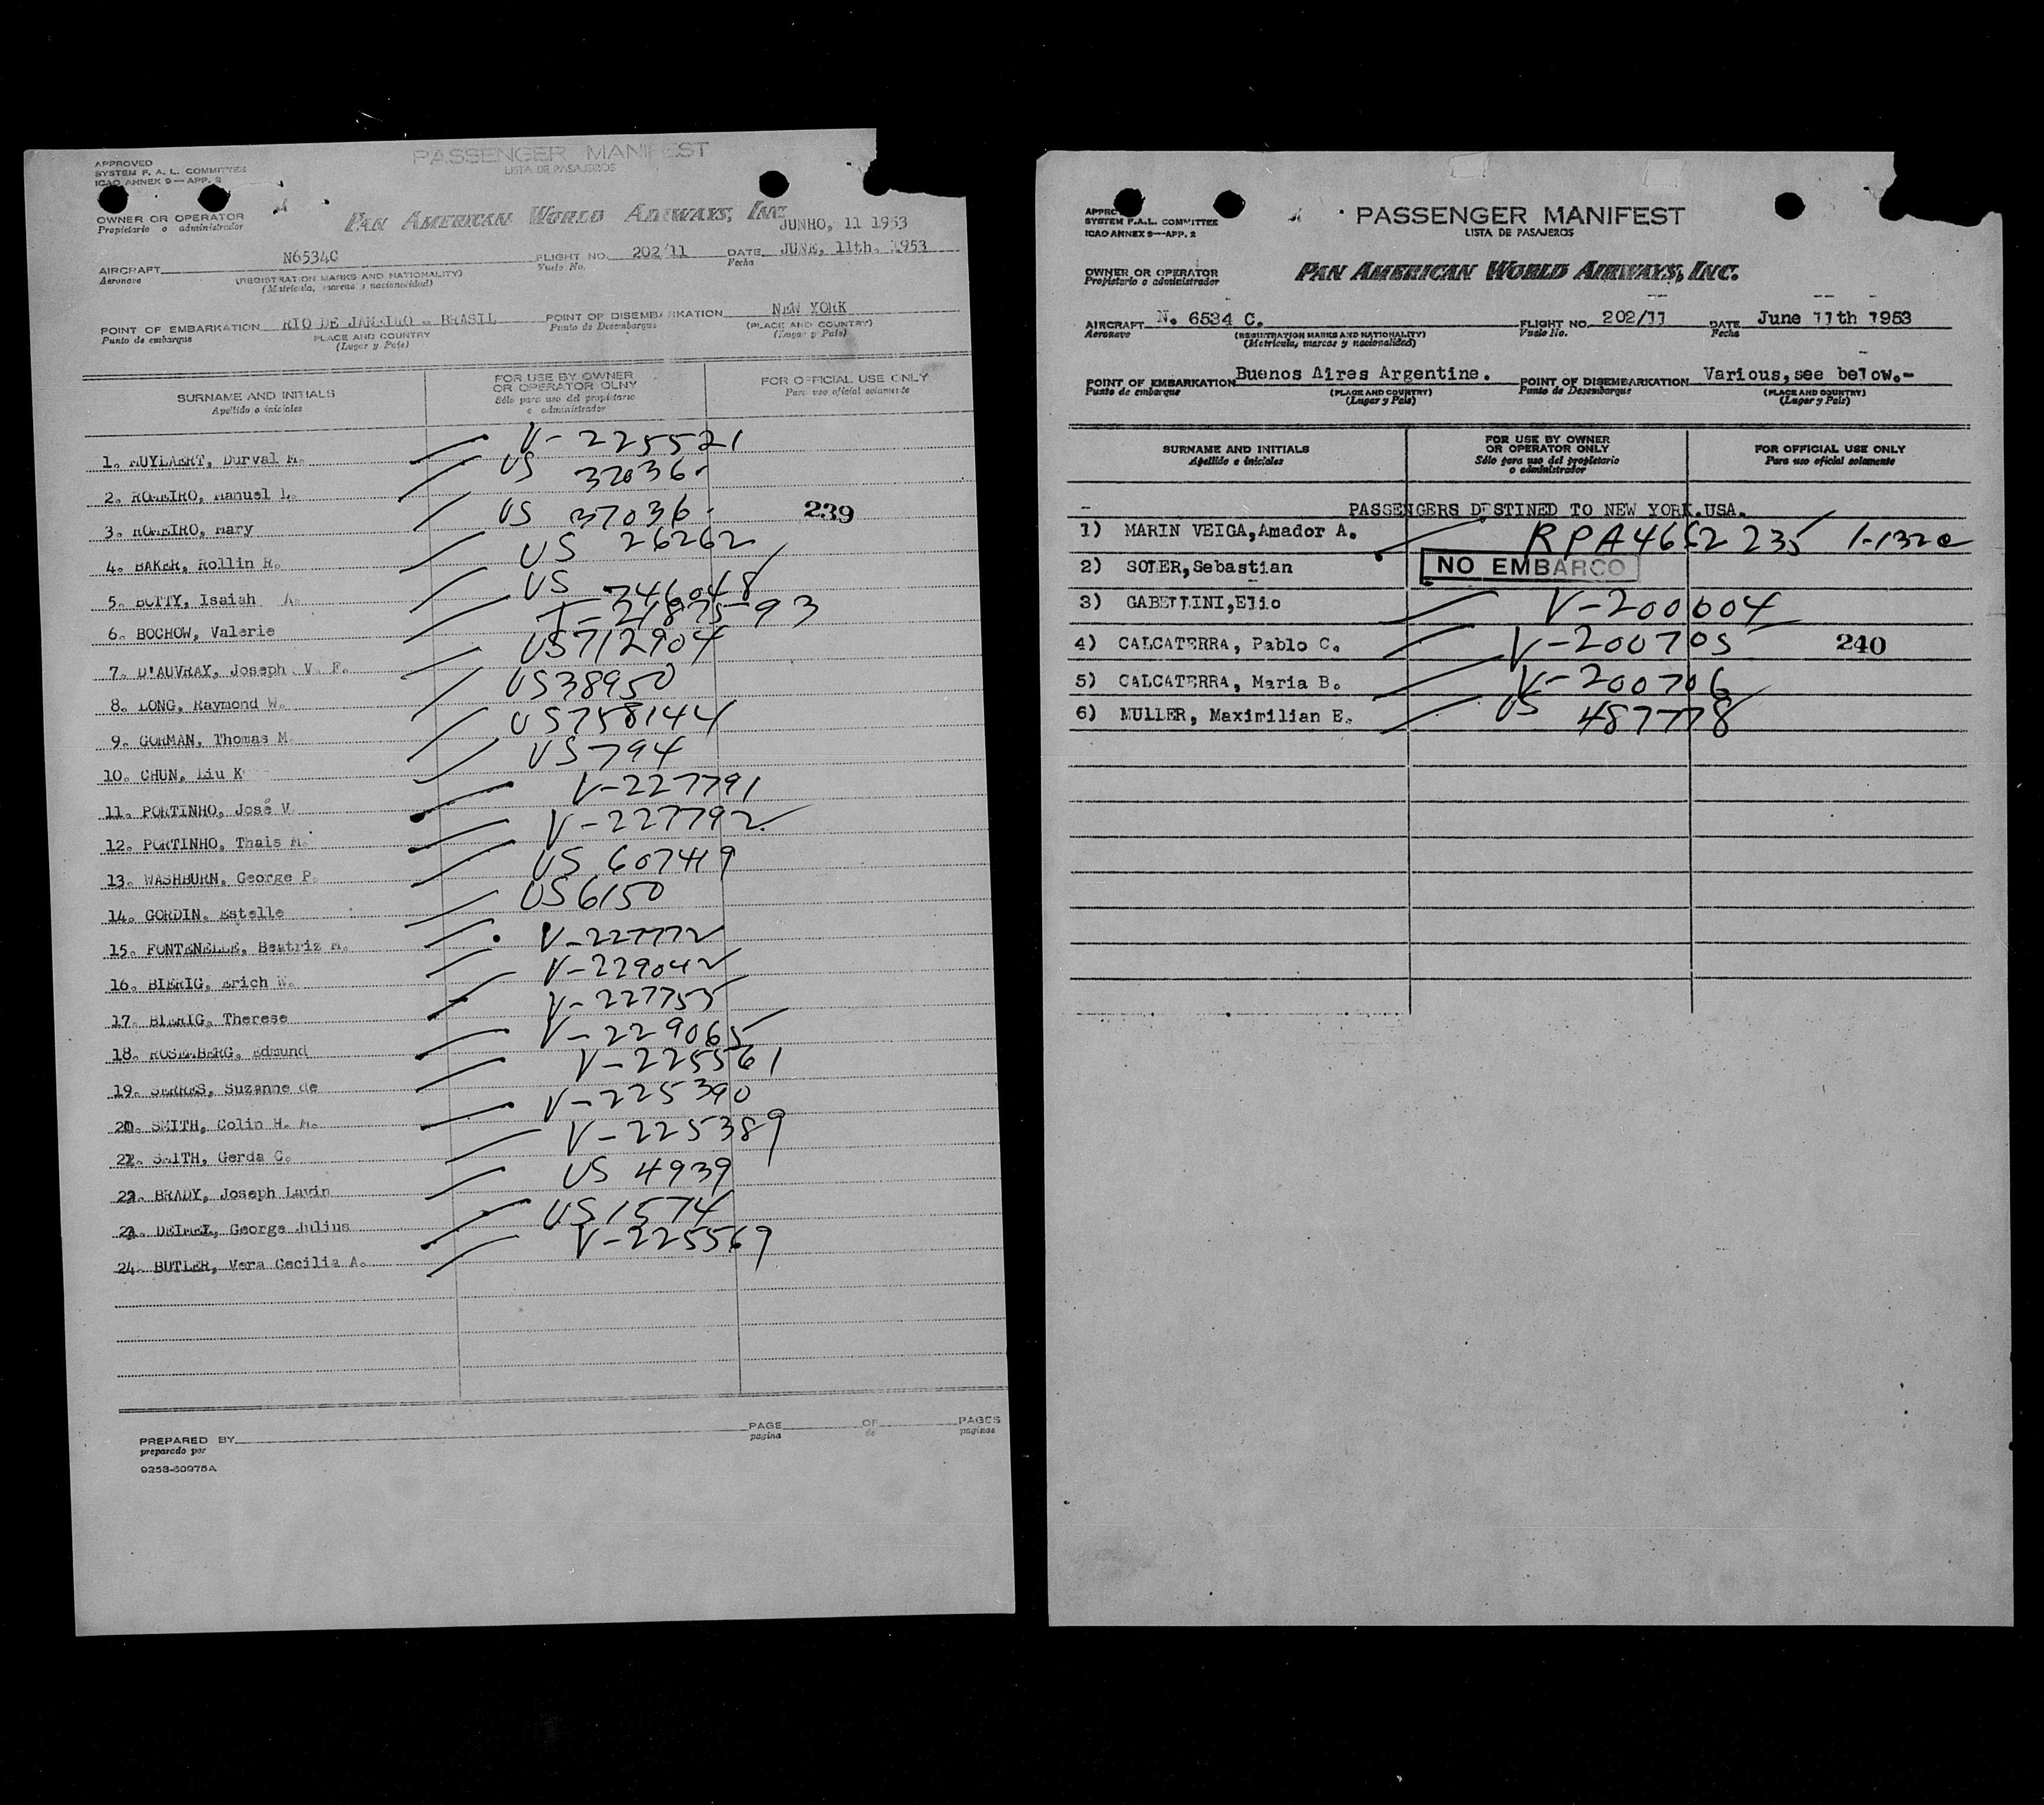 APPROVED
SYSTEM F. A. L. COMMITTEE
ICAO ANNEX 9—APP. 2
PASSENGER MANIFEST
LISTA DE PASAJEROS
OWNER OR OPERATOR
Propietario o administrador
PAN AMERICAN WORLD AIRWAYS, INC
JUNHO, 11 1953
AIRCRAFT N6534C FLIGHT NO. 202/11 DATE JUNE, 11th. 1953
Aeronave (REGISTRATION MARKS AND NATIONALITY) Vuelo No. Fecha
(Matrícula, marcas y nacionalidad)
POINT OF EMBARKATION RIO DE JANEIRO - BRASIL POINT OF DISEMBARKATION NEW YORK
Punto de embarque PLACE AND COUNTRY Punto de Desembarque (PLACE AND COUNTRY)
(Lugar y País) (Lugar y País)
SURNAME AND INITIALS FOR USE BY OWNER OR OPERATOR OLNY FOR OFFICIAL USE ONLY
Apellido e iniciales Sólo para uso del propietario o administrador Para uso oficial solamente
1. MUYLAERT, Durval M. V-225521
2. ROMEIRO, Manuel L. US 37036-
3. ROMEIRO, Mary US 37036- 239
4. BAKER, Rollin R. US 26262
5. BOTTY, Isaiah A. US 746048
6. BOCHOW, Valerie I-2187593
7. D'AUVRAY, Joseph V. F. US712904
8. LONG, Raymond W. US38950
9. GORMAN, Thomas M. US758144
10. CHUN, Liu K US794
11. PORTINHO, José V. V-227791
12. PORTINHO, Thais M. V-227792
13. WASHBURN, George P. US 607419
14. GORDIN, Estelle US6150
15. FONTENELLE, Beatriz M. V-227772
16. BIERIG, Erich W. V-229042
17. BIERIG, Therese V-227755
18. ROSEMBERG, Edmund V-229065
19. SERRES, Suzanne de V-225561
20. SMITH, Colin H. M. V-225390
21. SMITH, Gerda C. V-225389
22. BRADY, Joseph Lavin US 4939
23. George Julius US1574
24. BUTLER, Vera Cecilia A. V-225569
PREPARED BY PAGE OF PAGES
preparado por pagina de paginas
9253-60975A
SYSTEM F.A.L. COMMITTEE
ICAO ANNEX 9—APP. 2
PASSENGER MANIFEST
LISTA DE PASAJEROS
OWNER OR OPERATOR
Propietario o administrador
PAN AMERICAN WORLD AIRWAYS, INC.
AIRCRAFT N. 6534 C. FLIGHT NO. 202/11 DATE June 11th 1953
Aeronave (REGISTRATION MARKS AND NATIONALITY) Vuelo No. Fecha
(Matrícula, marcas y nacionalidad)
POINT OF EMBARKATION Buenos Aires Argentine. POINT OF DISEMBARKATION Various, see below.-
Punto de embarque (PLACE AND COUNTRY) Punto de Desembarque (PLACE AND COUNTRY)
(Lugar y País) (Lugar y País)
SURNAME AND INITIALS FOR USE BY OWNER OR OPERATOR ONLY FOR OFFICIAL USE ONLY
Apellido e iniciales Sólo para uso del propietario o administrador Para uso oficial solamente
PASSENGERS DESTINED TO NEW YORK.USA.
1) MARIN VEIGA,Amador A. RPA4662 235
2) SOLER,Sebastian NO EMBARCO
3) GABELLINI,Elio V-200604
4) CALCATERRA, Pablo C. V-200705 240
5) CALCATERRA, Maria B. V-200706
6) MULLER, Maximilian E. US 487778